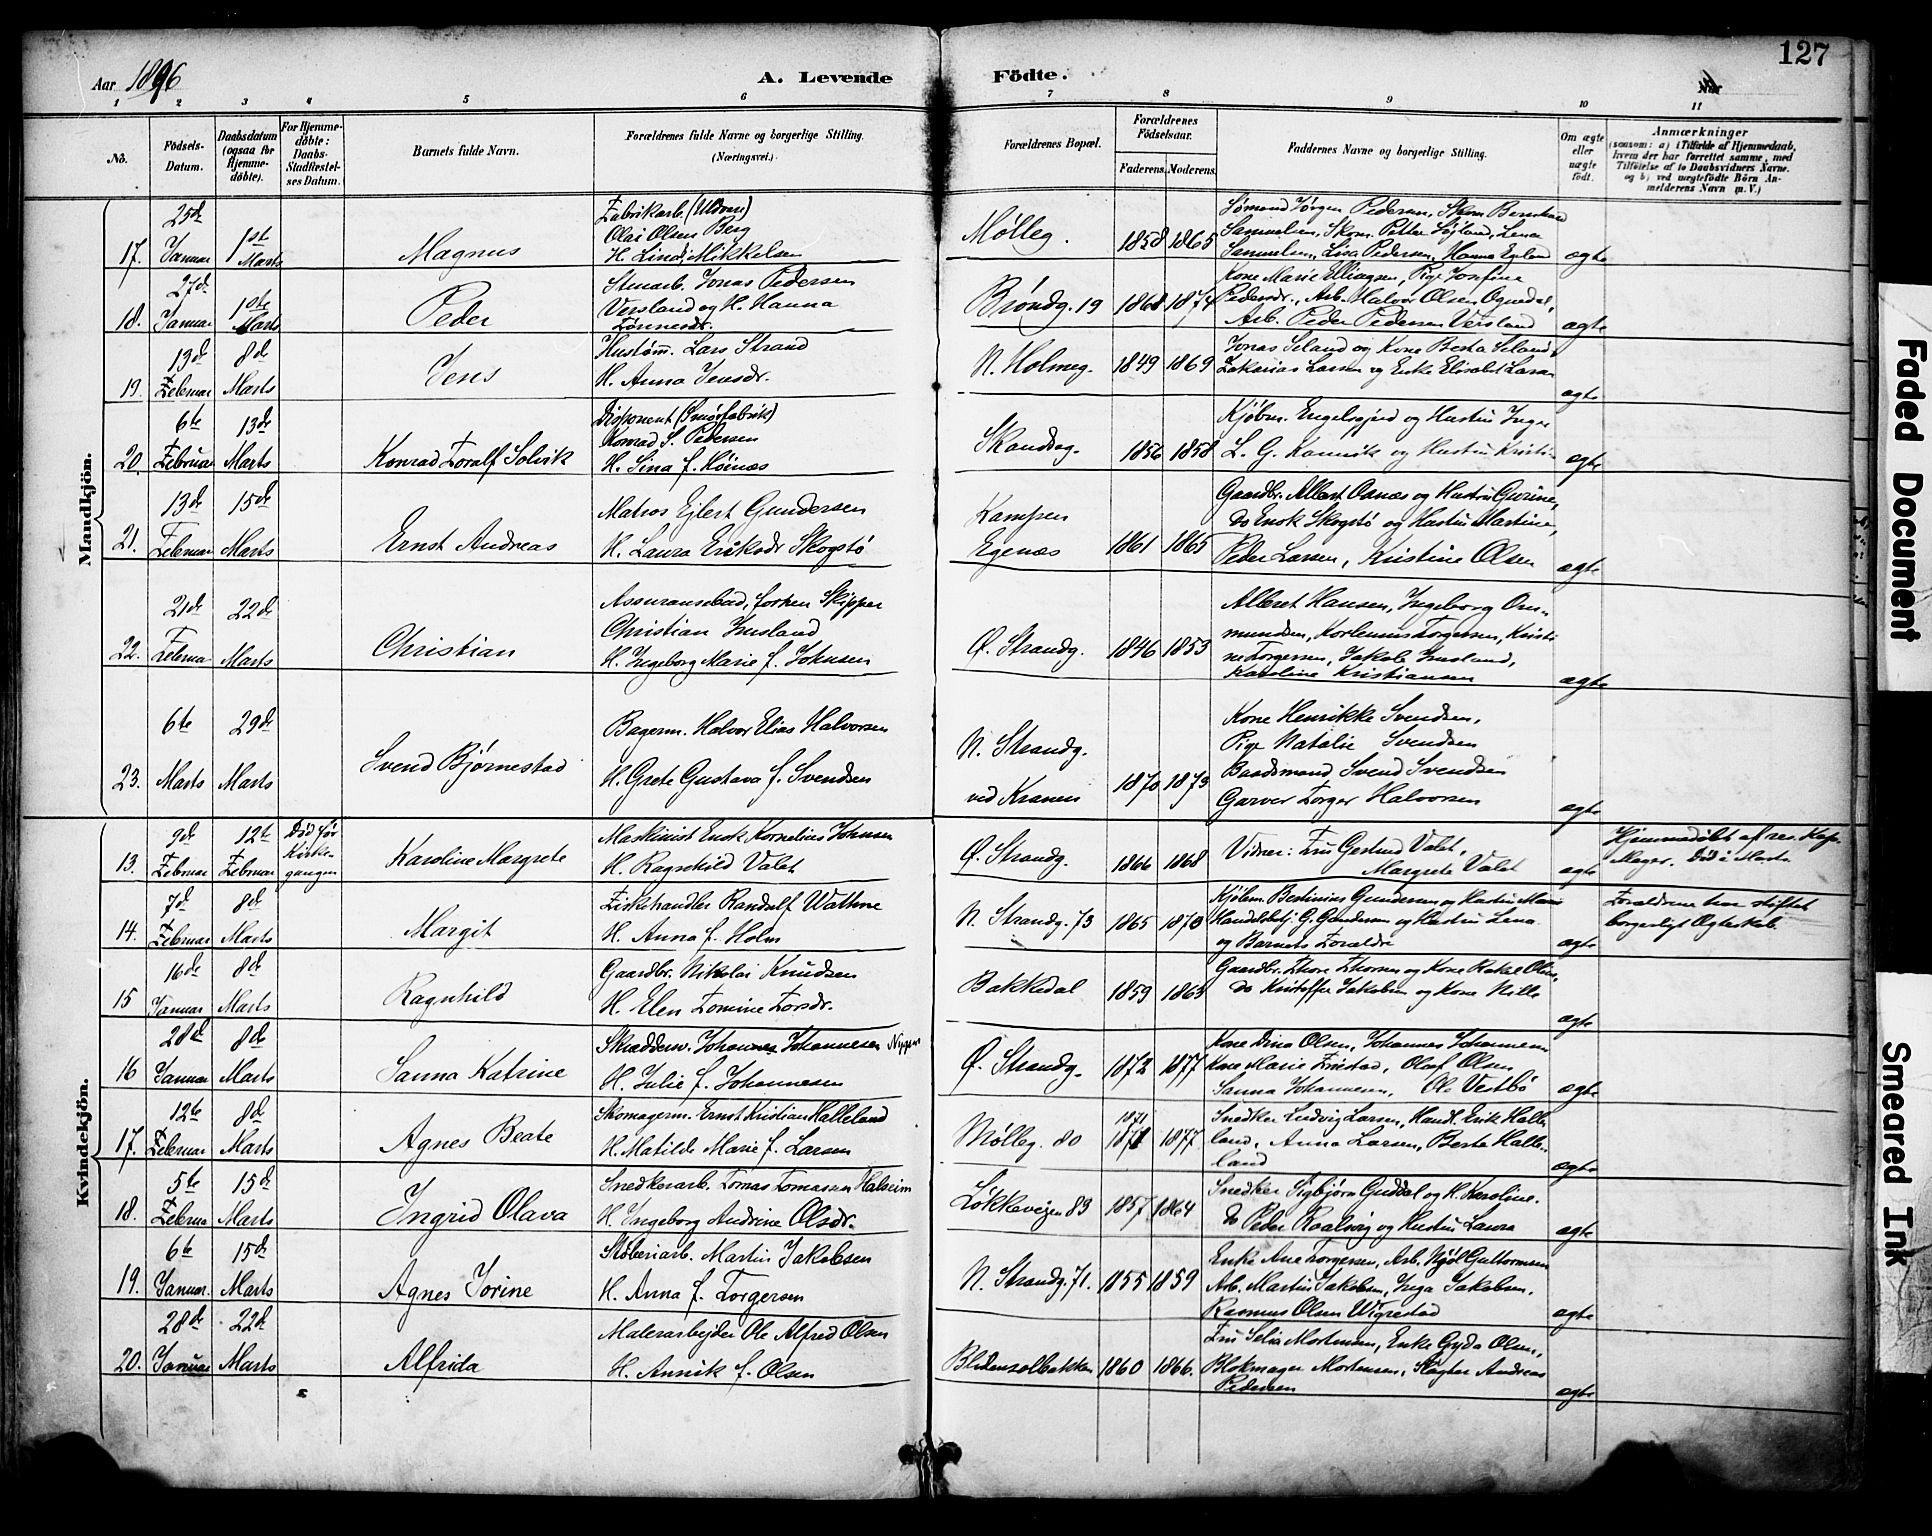 127
Aar 1896
A. Levende Födte.
1 2 3 4 5 6 7 8 9 10 11
No.
Födsels-Datum.
Daabsdatum (ogsaa for Hjemme-döbte).
For Hjemme-döbte: Daabs-Stadfæstel-ses Datum.
Barnets fulde Navn.
Forældrenes fulde Navne og borgerlige Stilling.
(Næringsvei.)
Forældrenes Bopæl.
Forældrenes Födselsaar.
Faderens. Moderens.
Faddernes Navne og borgerlige Stilling.
Om ægte eller uægte födt.
Anmærkninger
(saasom: a) i Tilfælde af Hjemmedaab,
hvem der har forrettet samme, med
Tilföielse af to Daabsvidners Navne.
og b) ved uægtefödte Börn An-
melderens Navn (n. V.)
Mandkjön.
17. 25de Januar 1ste Marts Magnus
Fabrikarb. (Uldvare)
Olai Olsen Berg
H. Lina Mikkelsen
Mølleg. 1858 1865
Sømand Jørgen Pedersen, Skom. Bernhard
Samuelsen, Skom. Petter Søyland, Lena
Samuelsen, Lisa Pedersen, Hanna Egeland
ægte
18. 27de Januar 1ste Marts Peder
Stenarb. Jonas Pedersen
Versland og H. Hanna
Tønnesdr.
Brøndg. 19 1868 1874
Kone Marie Ellingsen, Pige Josefine
Pedersdr., Arb. Halvor Olsen Ognedal,
Arb. Peder Pedersen Versland
ægte
19. 13de Februar 8de Marts Jens
Hustøm. Lars Strand
H. Anna Jensdr.
N. Holmeg. 1849 1869
Jonas Seland og Kone Berta Seland,
Zakarias Larsen og Enke Elisabet Larsen
ægte
20. 6te Februar 13de Marts Konrad Toralf Solvik
Disponent (Smørfabrik)
Konrad S. Pedersen
H. Sina f. Høinæs
Skandseg. 1856 1858
Kjøbm. Engelsgjerd og Hustru Inger
L. G. Kannik og Hustru Kristi
ægte
21. 13de Februar 15de Marts Ernst Andreas
Matros Ejlert Gundersen
H. Laura Eriksdr Skogstø
Kampen
Egenæs 1861 1865
Gaardbr. Albert Aanæs og Hustru Gurine,
Do Enok Skogstø og Hustru Martine,
Peder Larsen, Kristine Olsen
ægte
22. 21de Februar 22de Marts Christian
Assuransebud, forhen Skipper
Christian Imsland
H. Ingeborg Marie f. Johnsen
Ø. Strandg. 1846 1853
Albert Hansen, Ingeborg Om-
mundsen, Kornelius Torgersen, Kristi-
ne Torgersen, Jakob Imsland,
Karoline Kristiansen
ægte
23. 6te Marts 29de Marts Svend Bjørnestad
Bagerm. Halvor Elias Halvorsen
H. Grete Gustava f. Svendsen
N. Strandg.
ved Kranen 1870 1873
Kone Henrikke Svendsen,
Pige Natalie Svendsen
Baadsmand Svend Svendsen
Garver Torger Halvorsen
ægte
Kvindekjön.
13. 9de Februar 12te Februar Død før Kirke-gangen Karoline Margrete
Maskinist Enok Kornelius Johnsen
H. Ragnhild Valet
Ø. Strandg. 1866 1868
Vidner: Fru Gertrud Valet,
Margrete Valet
ægte
Hjemmedøbt af res. Kap.
Meyer. Død i Marts
14. 7de Februar 8de Marts Margit
Fiskehandler Randulf Wathne
H. Anna f. Holm
N. Strandg. 73 1865 1870
Kjøbm. Bertinius Gundersen og Hustru Marie
Handelsbetj. G. Gundersen og Hustru Lena
og Barnets Forældre
ægte
Forældrene har stiftet
borgerligt Ægteskab.
15 16de Januar 8de Marts Ragnhild
Gaardbr. Nikolai Knudsen
H. Elen Tomine Torsdr.
Bakkedal 1859 1863
Gaardbr. Thore Thorsen og Kone Rakel Oline,
Do Kristoffer Jakobsen og Kone Nille
ægte
16 28de Januar 8de Marts Sanna Katrine
Skrædderm. Johannes Johannesen
H. Julie f. Johannesen
Ø. Strandg. 1872 1877
Kone Dina Olsen, Johannes Johannesen
Kone Marie Finstad, Olaf Olsen
Sanna Johannesen, Ole Vestbø
ægte
17. 12te Februar 8de Marts Agnes Beate
Skomagerm. Ernst Kristian Halleland
H. Matilde Marie f. Larsen
Mølleg. 80 1871 1877
Snedker Ludvig Larsen, Handl. Erik Halle-
land, Anna Larsen, Berta Halle-
land
ægte
18. 5te Februar 15de Marts Ingrid Olava
Snedkerarb. Tomas Tomassen Halseim
H. Ingeborg Andrine Olsdr.
Løkkevejen 83 1857 1864
Snedker Sigbjørn Guddal og H. Karoline.
Do Peder Roalsvig og Hustru Laura
ægte
19. 6te Januar. 15de Marts Agnes Jorine
Støberiarb. Martin Jakobsen
H. Anna f. Torgersen
N. Strandg. 71. 1855 1859
Enke Ane Torgersen, Arb. Njøl Guttormsen
Arb. Martin Jakobsen, Inga Jakobsen,
Rasmus Olsen Wigrestad
ægte
20. 28de Januar 22de Marts Alfrida
Malerarbejder Ole Alfred Olsen
H. Annik f. Olsen
Blidensolbakken 1860 1866.
Fru Selia Mortensen, Enke Gyda Olsen,
Blokmager Mortensen, Slagter Andreas
Pedersen
ægte
Faded Document
Smeared Ink